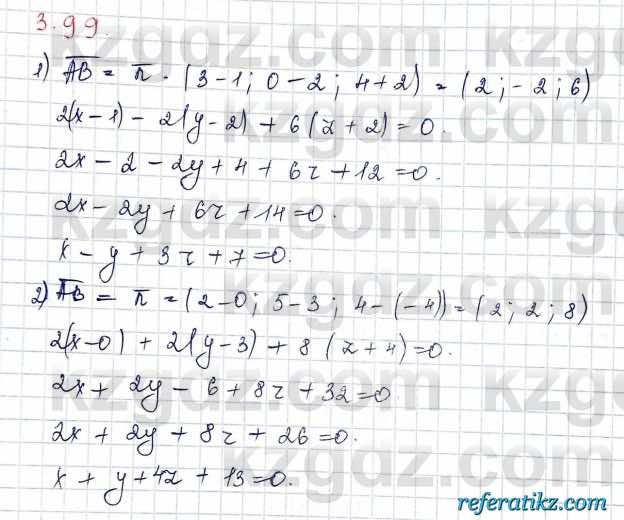 3.99.
1) AB = n · (3-1; 0-2; 4+2) = (2; -2; 6)
2(x-1) - 2(y-2) + 6(z+2) = 0.
2x - 2 - 2y + 4 + 6z + 12 = 0.
2x - 2y + 6z + 14 = 0.
x - y + 3z + 7 = 0.
2) AB = n = (2-0; 5-3; 4-(-4)) = (2; 2; 8)
2(x-0) + 2(y-3) + 8(z+4) = 0.
2x + 2y - 6 + 8z + 32 = 0
2x + 2y + 8z + 26 = 0.
x + y + 4z + 13 = 0.
referatikz.com